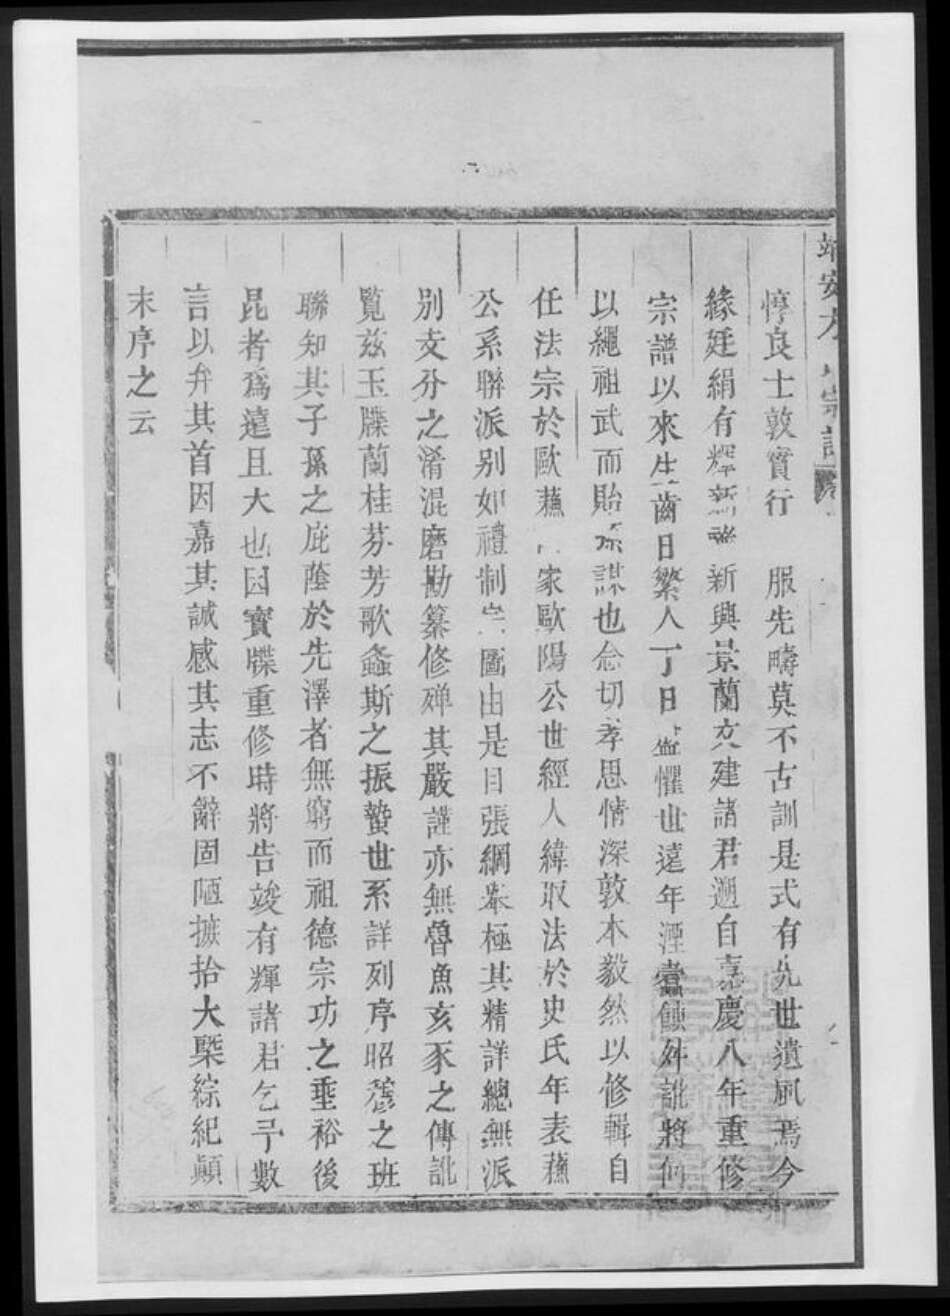 靖安 宗譜
惇良士敦實行 服先疇莫不古訓是式有先世遺風焉今
緣廷絹有輝新 新興景蘭 建諸君遡自嘉慶八年重修
宗譜以來生齒日繁人丁日 懼世遠年湮蠹蝕舛訛將何
以繩祖武而貽 謀也念切孝思情深敦本毅然以修輯自
任法宗於歐蘓 家歐陽公世經人緯取法於史氏年表蘓
公系聯派别如禮制宗圖由是目張綱舉極其精詳總無派
别支分之淆混磨勘纂修殫其嚴謹亦無魯魚亥豕之傳訛
覧兹玉牒蘭桂芬芳歌螽斯之振蟄世系詳列序昭穆之班
聯知其子孫之庇蔭於先澤者無窮而祖德宗功之垂裕後
昆者爲遠且大也因寳牒重修時將告竣有輝諸君乞予數
言以弁其首因嘉其誠感其志不辭固陋摭拾大槩綜紀顛
末序之云